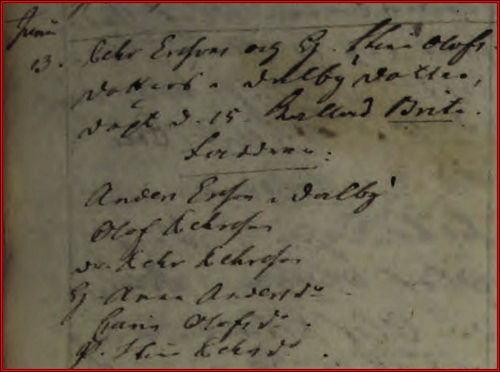 Junii
13. Pehr Ersons och H. Stina Olofs-
dotters i Dalby dotter,
döpt d. 15 kallad Brita.
Faddrar:
Anders Erson i Dalby
Olof Pehrson
dr. Pehr Pehrson
H. Anna Andersdr
Carin Olofsdr.
P. Stina Pehrsdr.